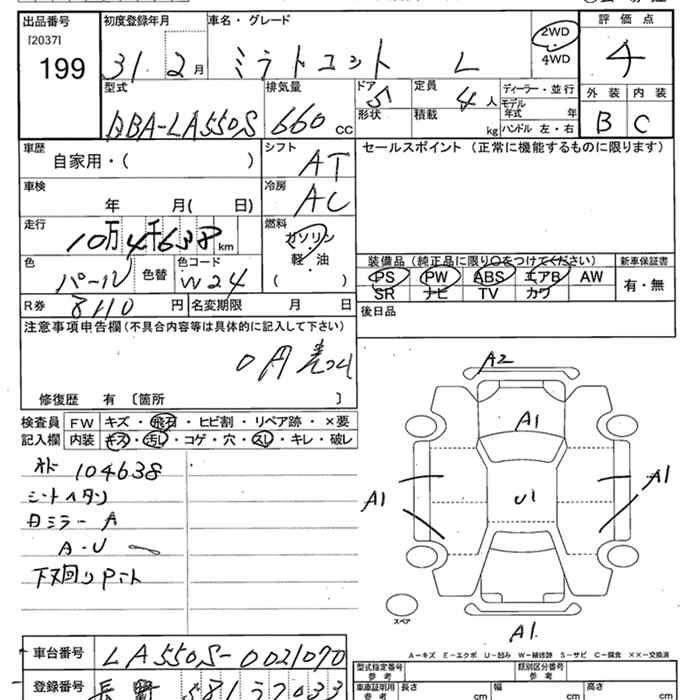 出品番号 初度登録年月 車名・グレード 2WD 評価点
[2037] 199 31 2月 ミラトコット L 4WD 4
型式 排気量 ドア 5 定員 4人 ディーラー・並行 外装 内装
DBA-LA550S 660cc 形状 積載 kg モデル年式 年 B C
ハンドル 左・右
車歴 自家用・( ) シフト AT セールスポイント (正常に機能するものに限ります)
車検 年 月( 日) 冷房 AC
走行 10万4千638km 燃料 ガソリン・軽・油 ( )
色 パール 色替 色コード W24
装備品 (純正品に限り○をつけてください) 新車保証書
PS PW ABS エアB AW 有・無
SR ナビ TV カワ
R券 8110円 名変期限 月 日 後日品
注意事項申告欄(不具合内容等は具体的に記入して下さい)
修復歴 有 〔箇所 〕
検査員 FW キズ・飛石・ヒビ割・リペア跡・×要
記入欄 内装 キズ・汚し・コゲ・穴・スレ・キレ・破レ
104638
シートヘタリ
日ミラーA
A・U
下叉回りPニト
A2
A1
A1
U1
A1
A1
スペア
A-キズ E-エクボ U-凹み W-補修跡 S-サビ C-腐食 ××-交換済
車台番号 LA550S-0021070
型式指定番号 参考 類別区分番号 参考
登録番号 長野 581 37033
車庫証明用 参考 長さ cm 幅 cm 高さ cm